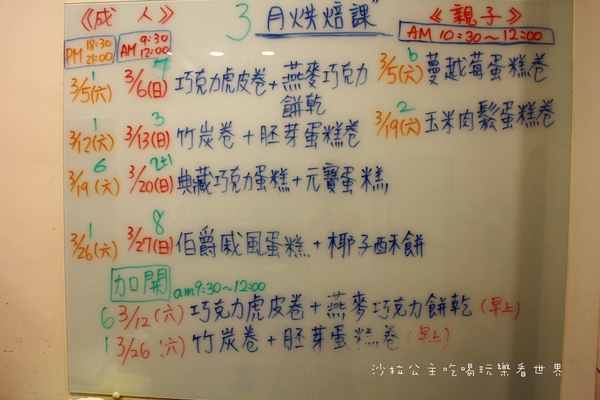 《成人》 3月烘焙課 《親子》
PM 18:30 21:00 AM 9:30 12:00 AM 10:30～12:00
1 7 6
3/5(六) 3/6(日) 巧克力虎皮卷+燕麥巧克力餅乾 3/5(六) 蔓越莓蛋糕卷
1 3 2
3/12(六) 3/13(日) 竹炭卷+胚芽蛋糕卷 3/19(六) 玉米肉鬆蛋糕卷
6 2+1
3/19(六) 3/20(日) 典藏巧克力蛋糕+元寶蛋糕
1 8
3/26(六) 3/27(日) 伯爵戚風蛋糕+椰子酥餅
加開 am9:30～12:00
6 3/12(六) 巧克力虎皮卷+燕麥巧克力餅乾(早上)
1 3/26(六) 竹炭卷+胚芽蛋糕卷(早上)
沙拉公主吃喝玩樂看世界